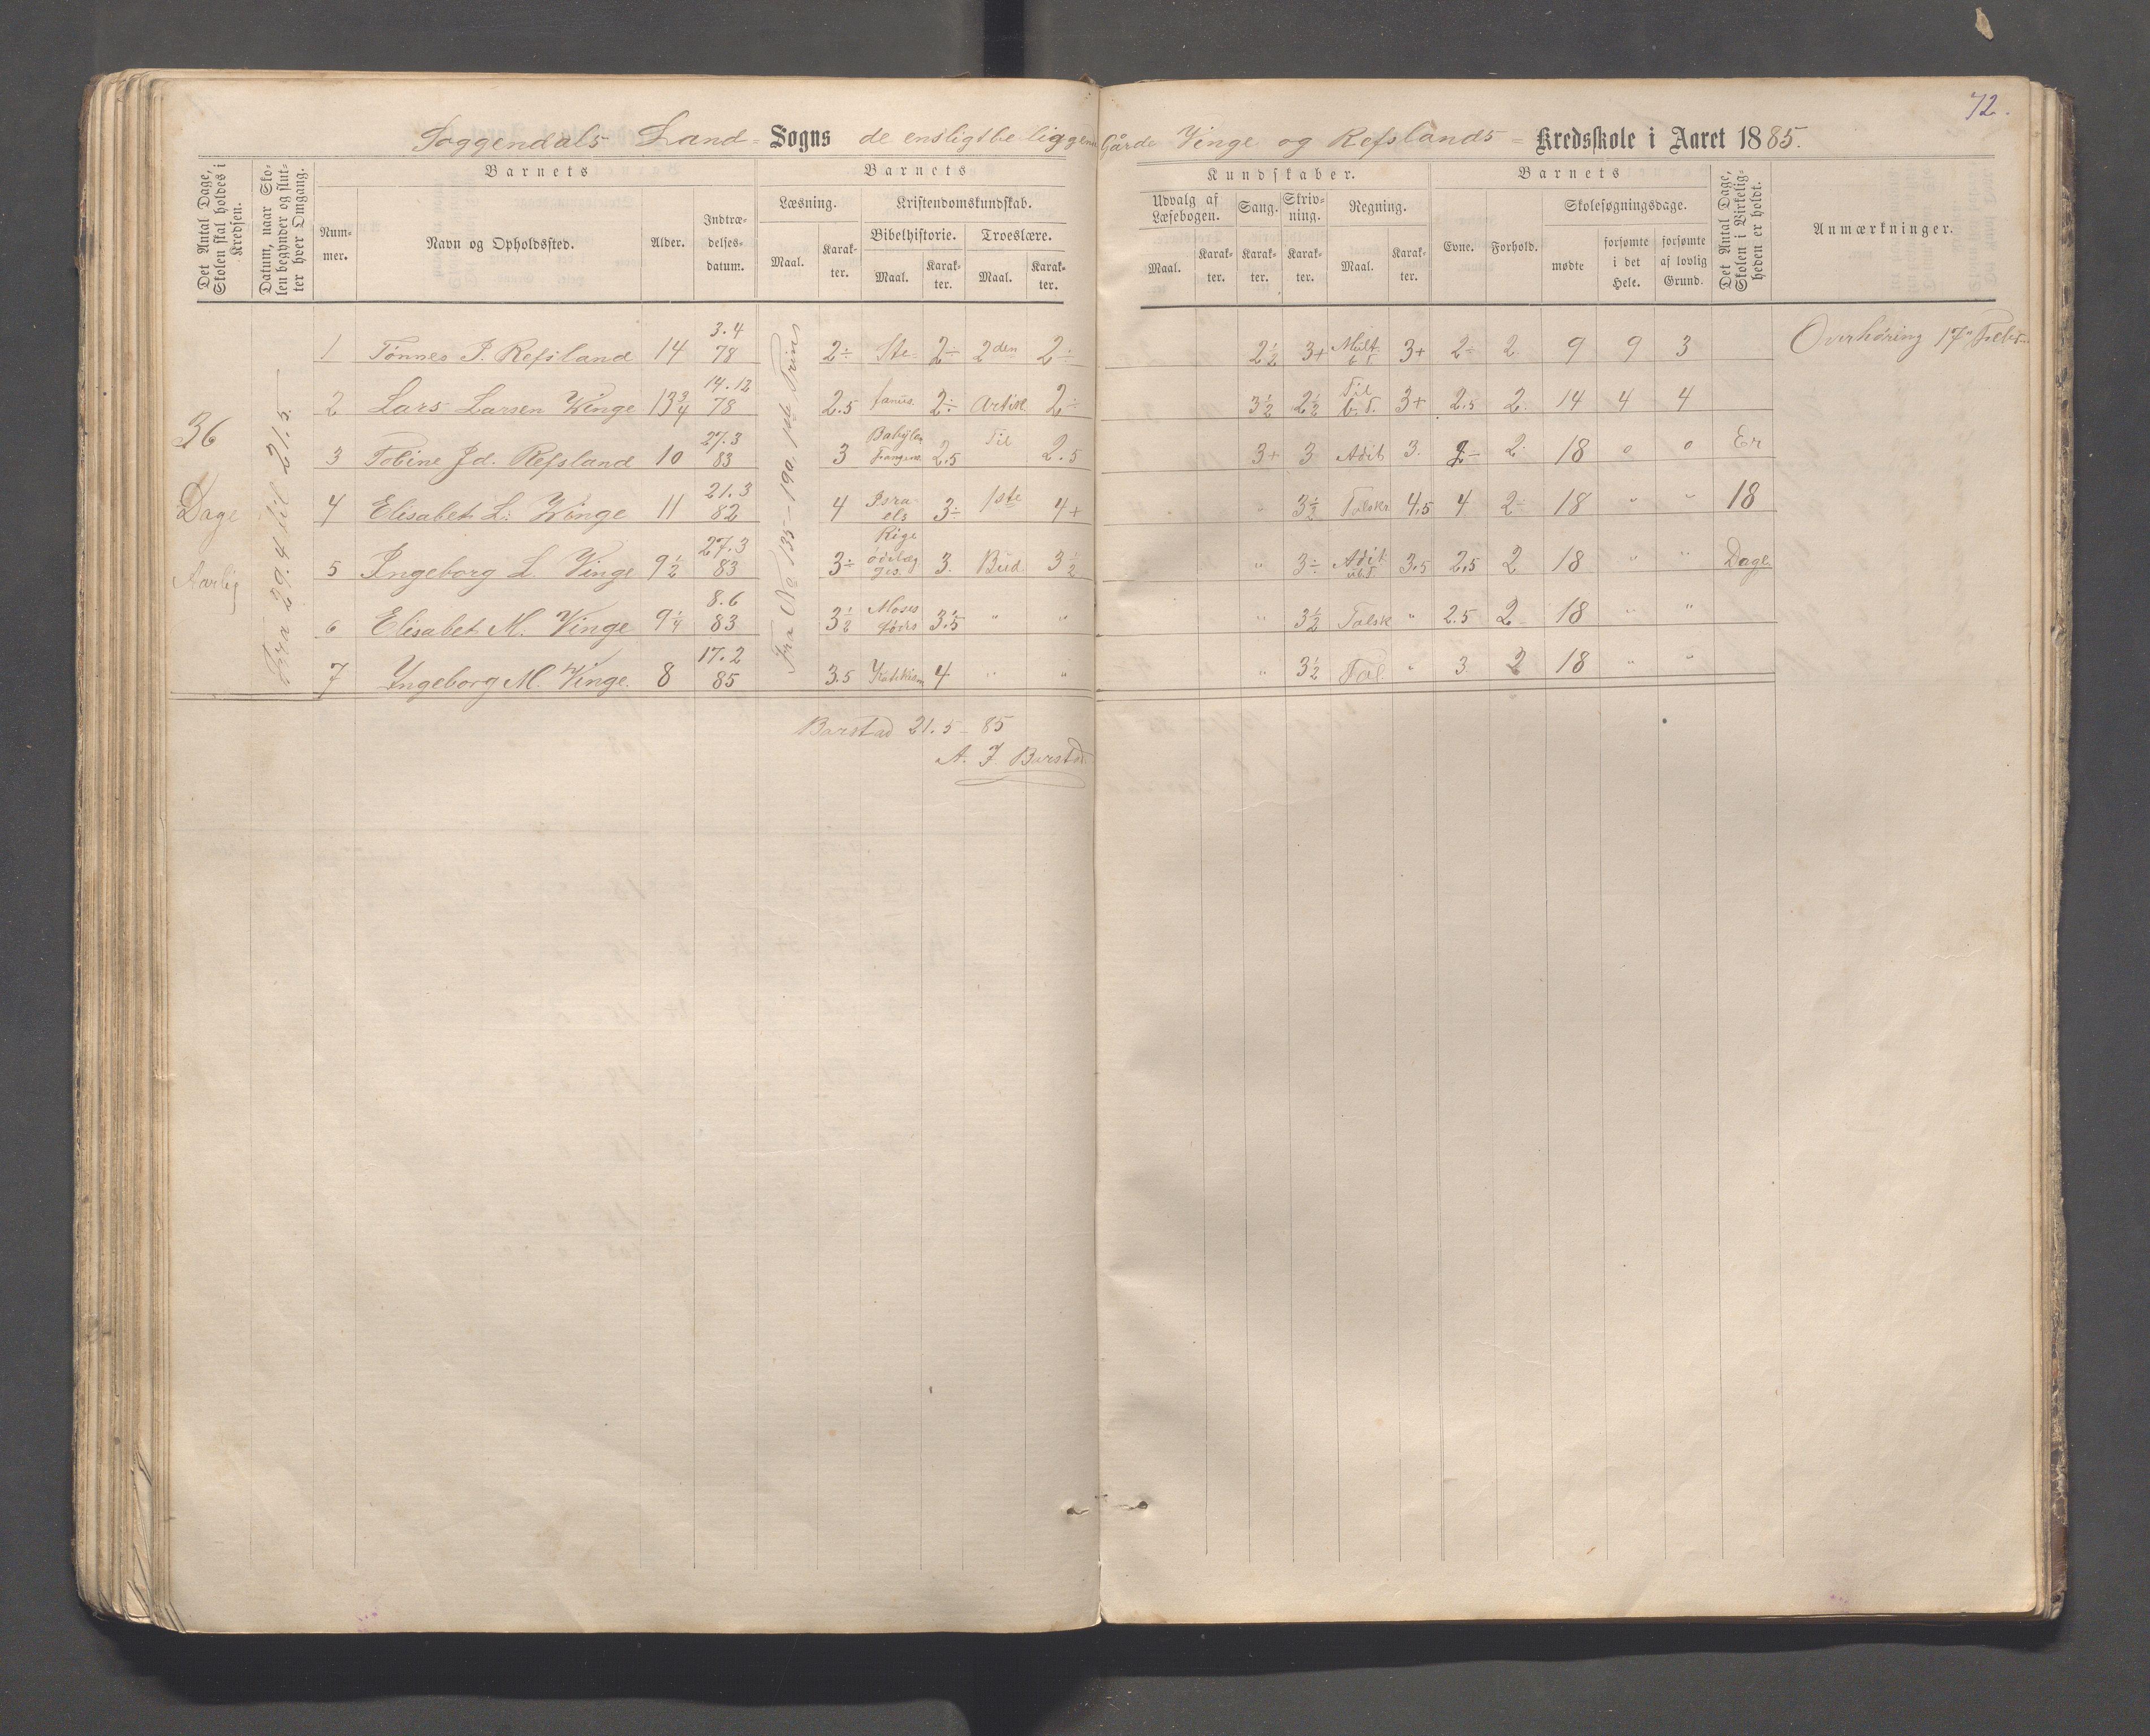 72.
Soggendals Land- Sogns de ensligtbeliggende Gårde Vinge og Refslands - Kredsskole i Aaret 1885.
Det Antal Dage, Skolen skal holdes i Kredsen.
Datum, naar Skolen begynder og slutter hver Omgang.
Barnets
Nummer.
Navn og Opholdssted.
Alder.
Indtrædelsesdatum.
Barnets
Læsning.
Maal.
Karakter.
Kristendomskundskab.
Bibelhistorie.
Maal.
Karakter.
Troeslære.
Maal.
Karakter.
Kundskaber.
Udvalg af Læsebogen.
Maal.
Karakter.
Sang.
Karakter.
Skrivning.
Karakter.
Regning.
Maal.
Karakter.
Barnets
Evne.
Forhold.
Skolesøgningsdage.
mødte
forsømte i det Hele.
forsømte af lovlig Grund.
Det Antal Dage, Skolen i Virkeligheden er holdt.
Anmærkninger.
36 Dage Aarlig
Fra 29.4 til 21.5.
Fra No 135-190. 1ste Trin
1 Tønnes P. Refsland 14 3.4 78 2÷ 2÷ 2den 2÷ 2½ 3+ Mult 3+ 2÷ 2 9 9 3 Overhøring
2 Lars Larsen Vinge 13¾ 14.12 78 2.5 2÷ Artik 2÷ 3½ 2½ Til 3+ 2.5 2 14 4 4
3 Tobine Jd. Refsland 10 27.3 83 3 Babÿlon Fangens. 2.5 Til 2.5 3+ 3 Adit 3. 2- 2 18 0 0 Er
4 Elisabet L. Vinge 11 21.3 82 4 Israels 3÷ 1ste 4+ " 3½ Talskr 4.5 4 2 18 " " 18
5 Ingeborg L. Vinge 9½ 27.3 83 3÷ Rige ødelægges. 3. Bud 3½ " 3÷ Adit 3.5 2.5 2 18 " " Dage.
6 Elisabet M. Vinge 9¼ 8.6 83 3½ Moses føds 3.5 " " " 3½ Talsk " 2.5 2 18 " "
7 Ingeborg M. Vinge. 8 17.2 85 3.5 4 " " " 3½ Tal. " 3 2 18 " "
Barstad 21.5 - 85
A. J. Barstad